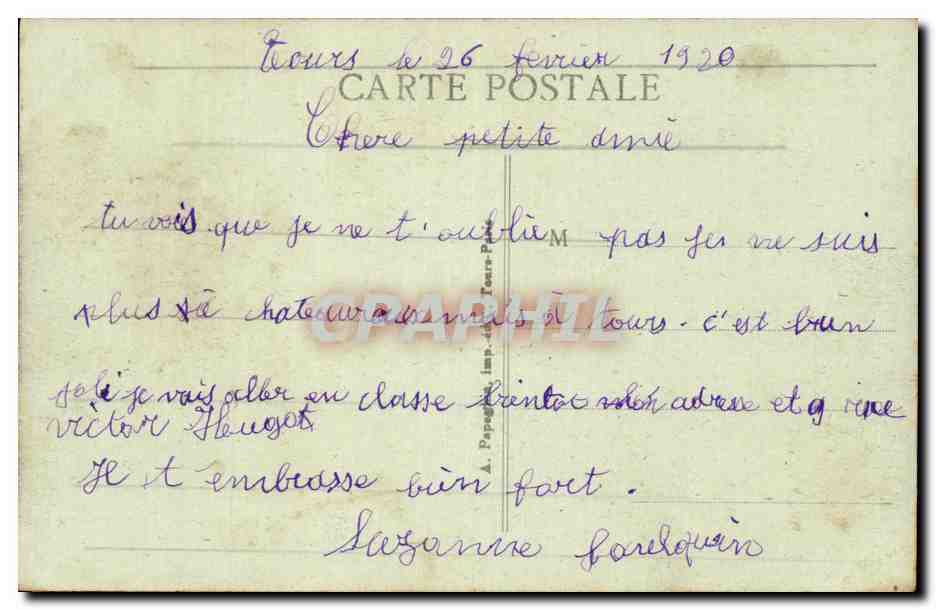 Tours le 26 février 1920
CARTE POSTALE
Chere petite amie
tu vois que je ne t'oublie pas je ne suis
M
plus à chateauroux mais à tours. c'est bien
CPAPHIL
joli je vais aller en classe bientot mon adresse et 9 rue
victor Hugot
Je t embrasse bien fort.
Suzanne
A. Papeghin, imp. Tours-Paris